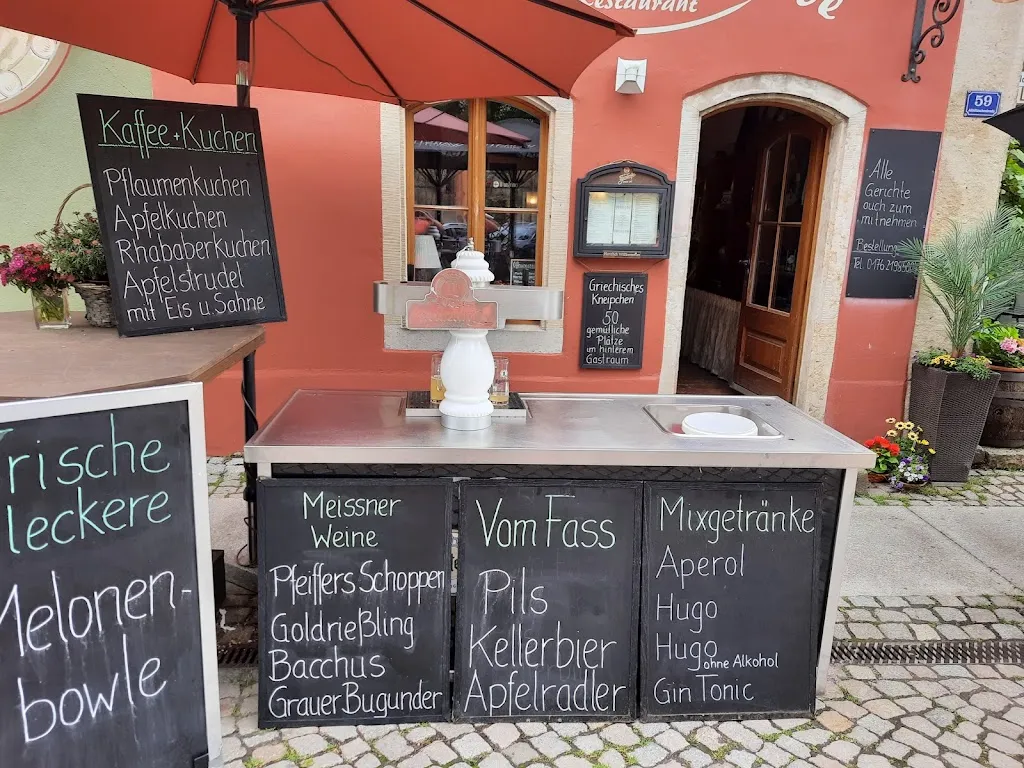 Restaurant
59
Kaffee + Kuchen
Pflaumenkuchen
Apfelkuchen
Rhababerkuchen
Apfelstrudel
mit Eis u. Sahne
Alle
Gerichte
auch zum
mitnehmen
Bestellung
Griechisches
Kneipchen
50
gemütliche
Plätze
im hinterem
Gastraum
Frische
leckere
Melonen-
bowle
Meissner
Weine
Pfeiffers Schoppen
Goldrießling
Bacchus
Grauer Bugunder
Vom Fass
Pils
Kellerbier
Apfelradler
Mixgetränke
Aperol
Hugo
Hugo ohne Alkohol
Gin Tonic